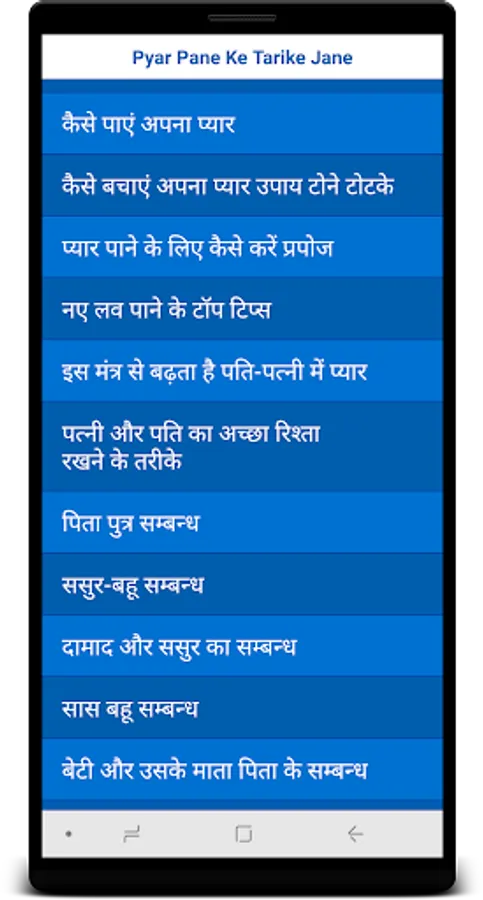 Pyar Pane Ke Tarike Jane
कैसे पाएं अपना प्यार
कैसे बचाएं अपना प्यार उपाय टोने टोटके
प्यार पाने के लिए कैसे करें प्रपोज
नए लव पाने के टॉप टिप्स
इस मंत्र से बढ़ता है पति-पत्नी में प्यार
पत्नी और पति का अच्छा रिश्ता
रखने के तरीके
पिता पुत्र सम्बन्ध
ससुर-बहू सम्बन्ध
दामाद और ससुर का सम्बन्ध
सास बहू सम्बन्ध
बेटी और उसके माता पिता के सम्बन्ध